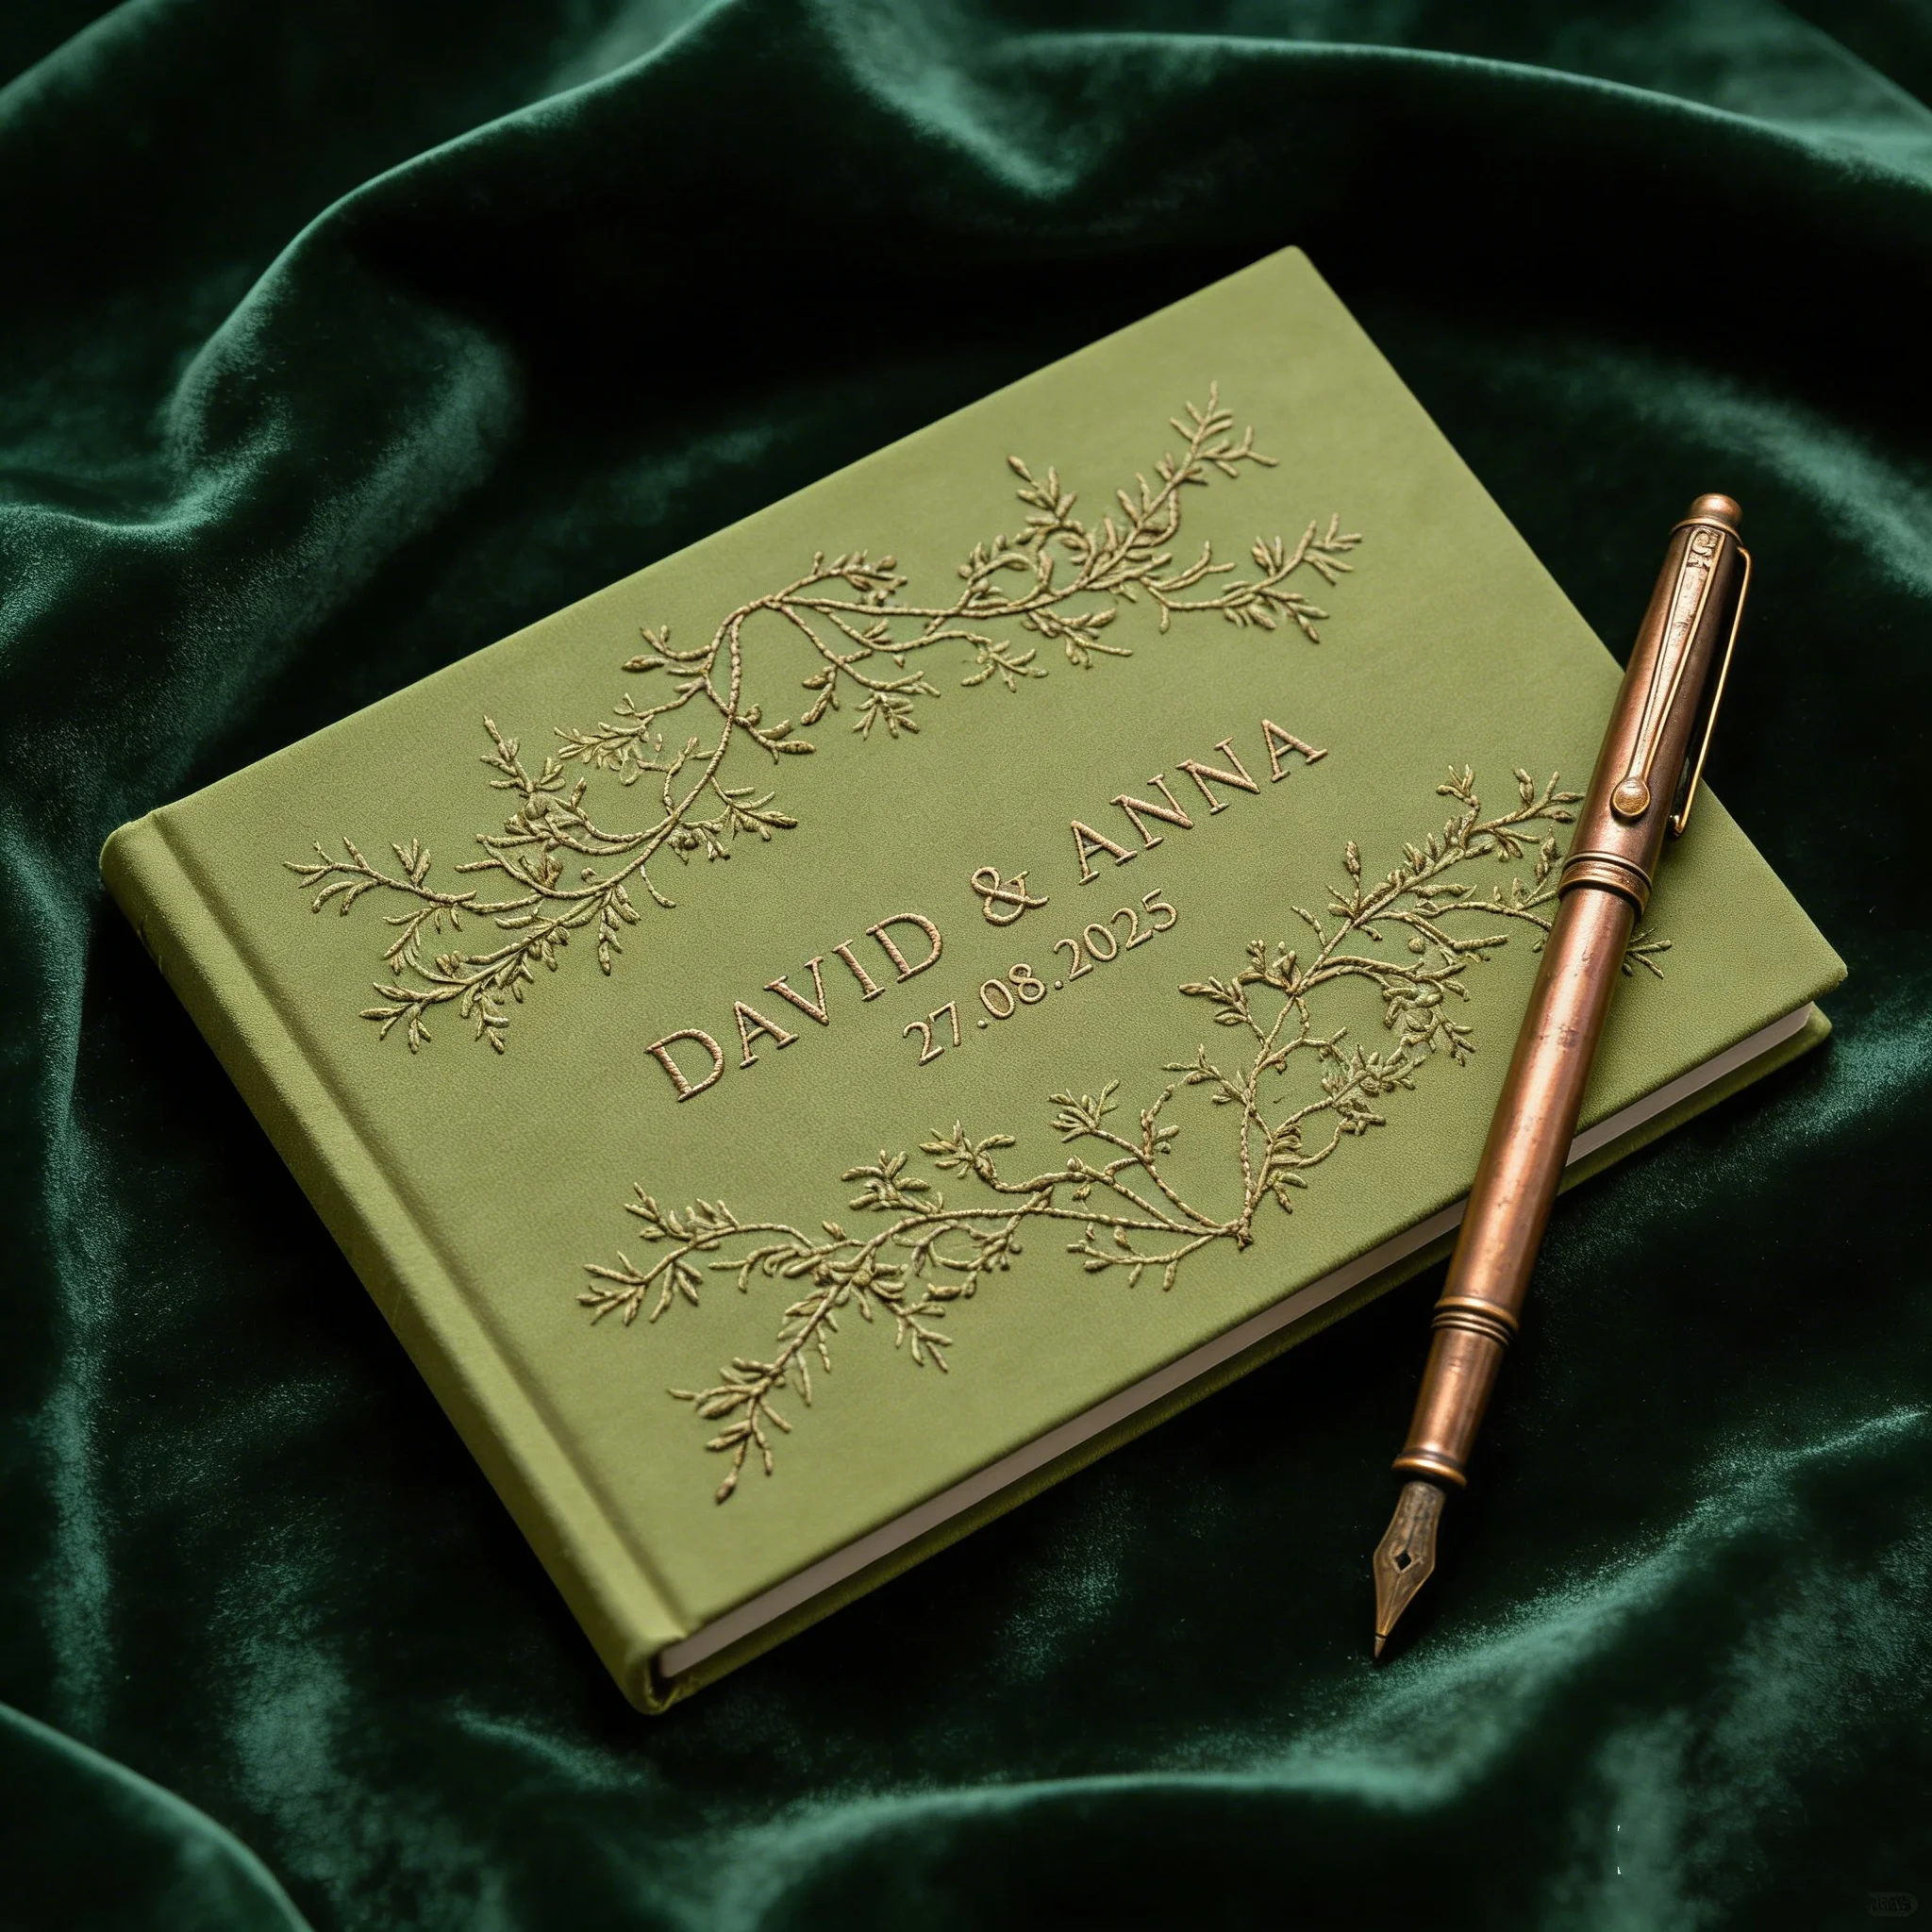 DAVID & ANNA
27.08.2025